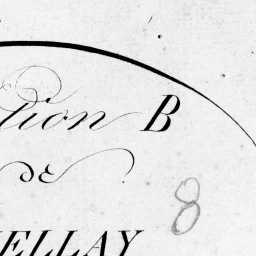 tion B
de
8
ELLAY